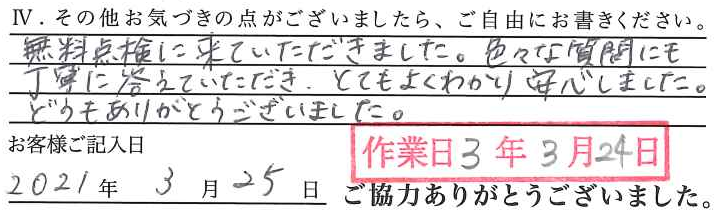 Ⅳ．その他お気づきの点がございましたら、ご自由にお書きください。
無料点検に来ていただきました。色々な質問にも
丁寧に答えていただき、とてもよくわかり安心しました。
どうもありがとうございました。
お客様ご記入日
作業日3年3月24日
2021年 3月25日
ご協力ありがとうございました。